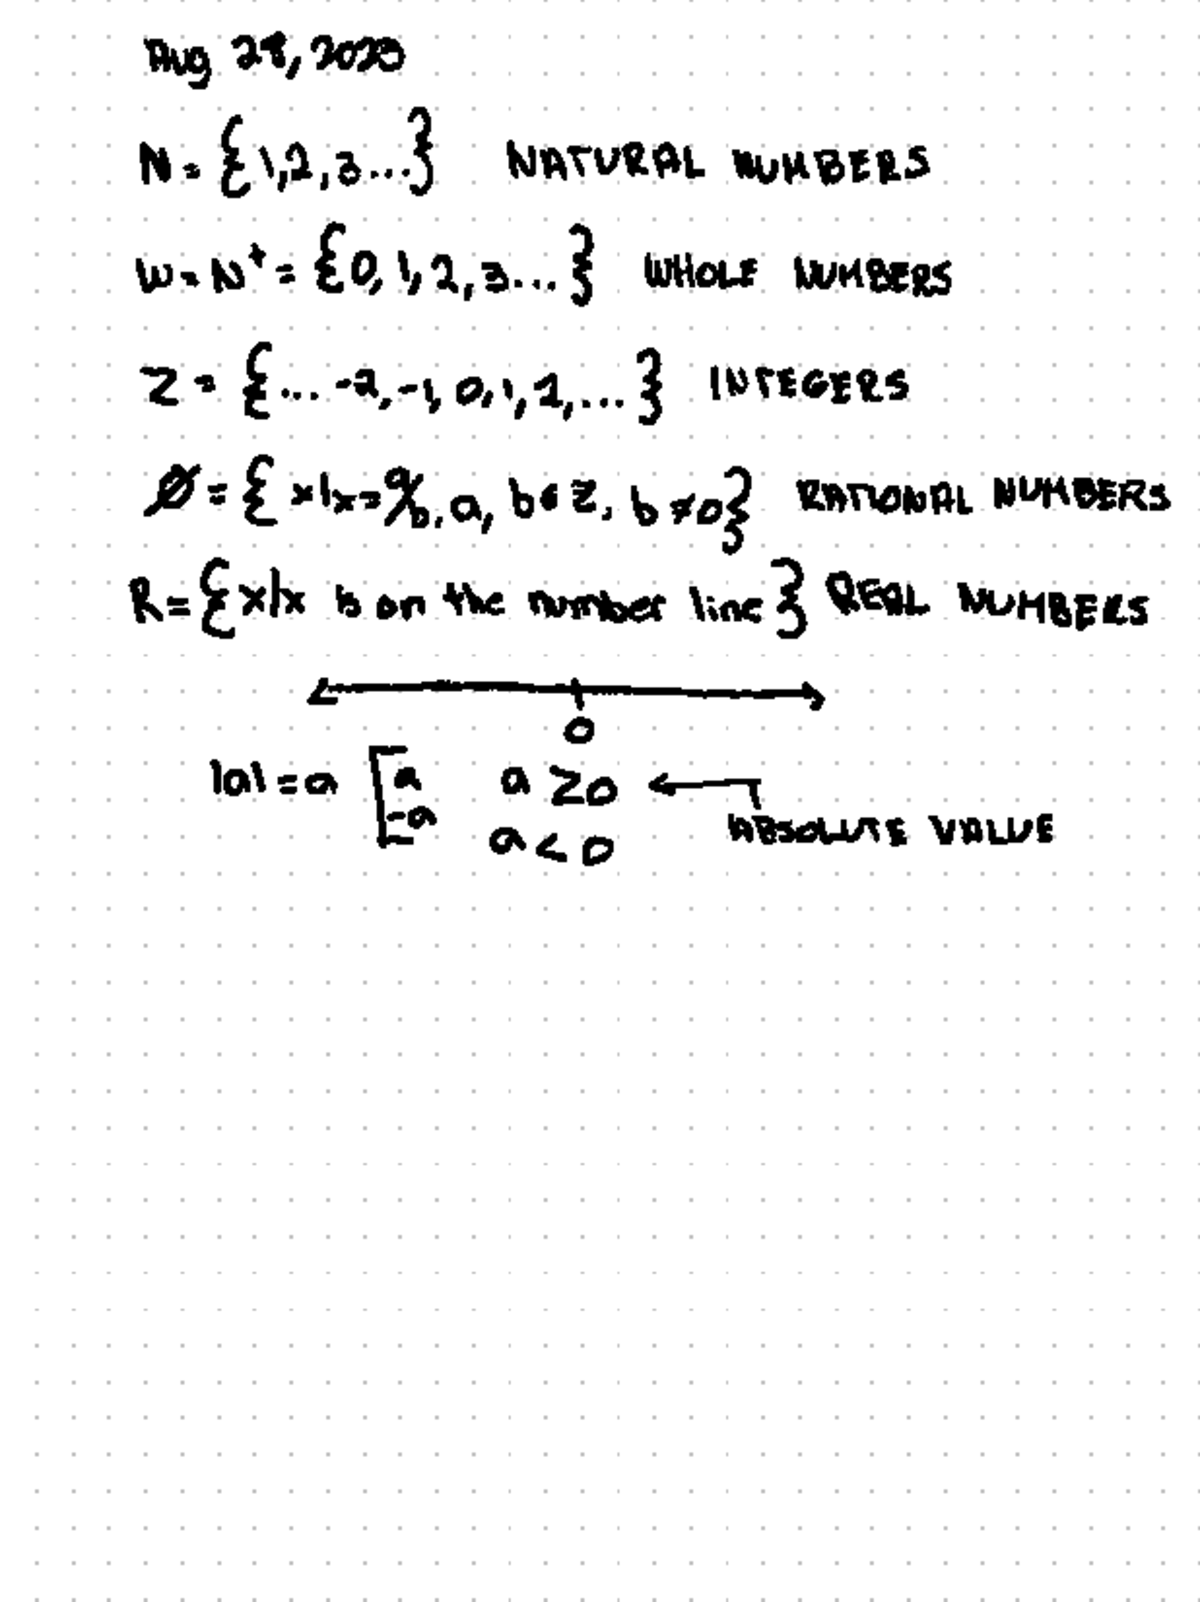 Aug 28, 2023
N = {1,2,3...} NATURAL NUMBERS
W = N⁺ = {0, 1, 2, 3...} WHOLE NUMBERS
Z = {... -2, -1, 0, 1, 2, ...} INTEGERS
Ø = {x|x = a/b, a, b ∈ Z, b ≠ 0} RATIONAL NUMBERS
R = {x|x is on the number line} REAL NUMBERS
0
|a| = a [a a ≥ 0
-a a < 0
ABSOLUTE VALUE